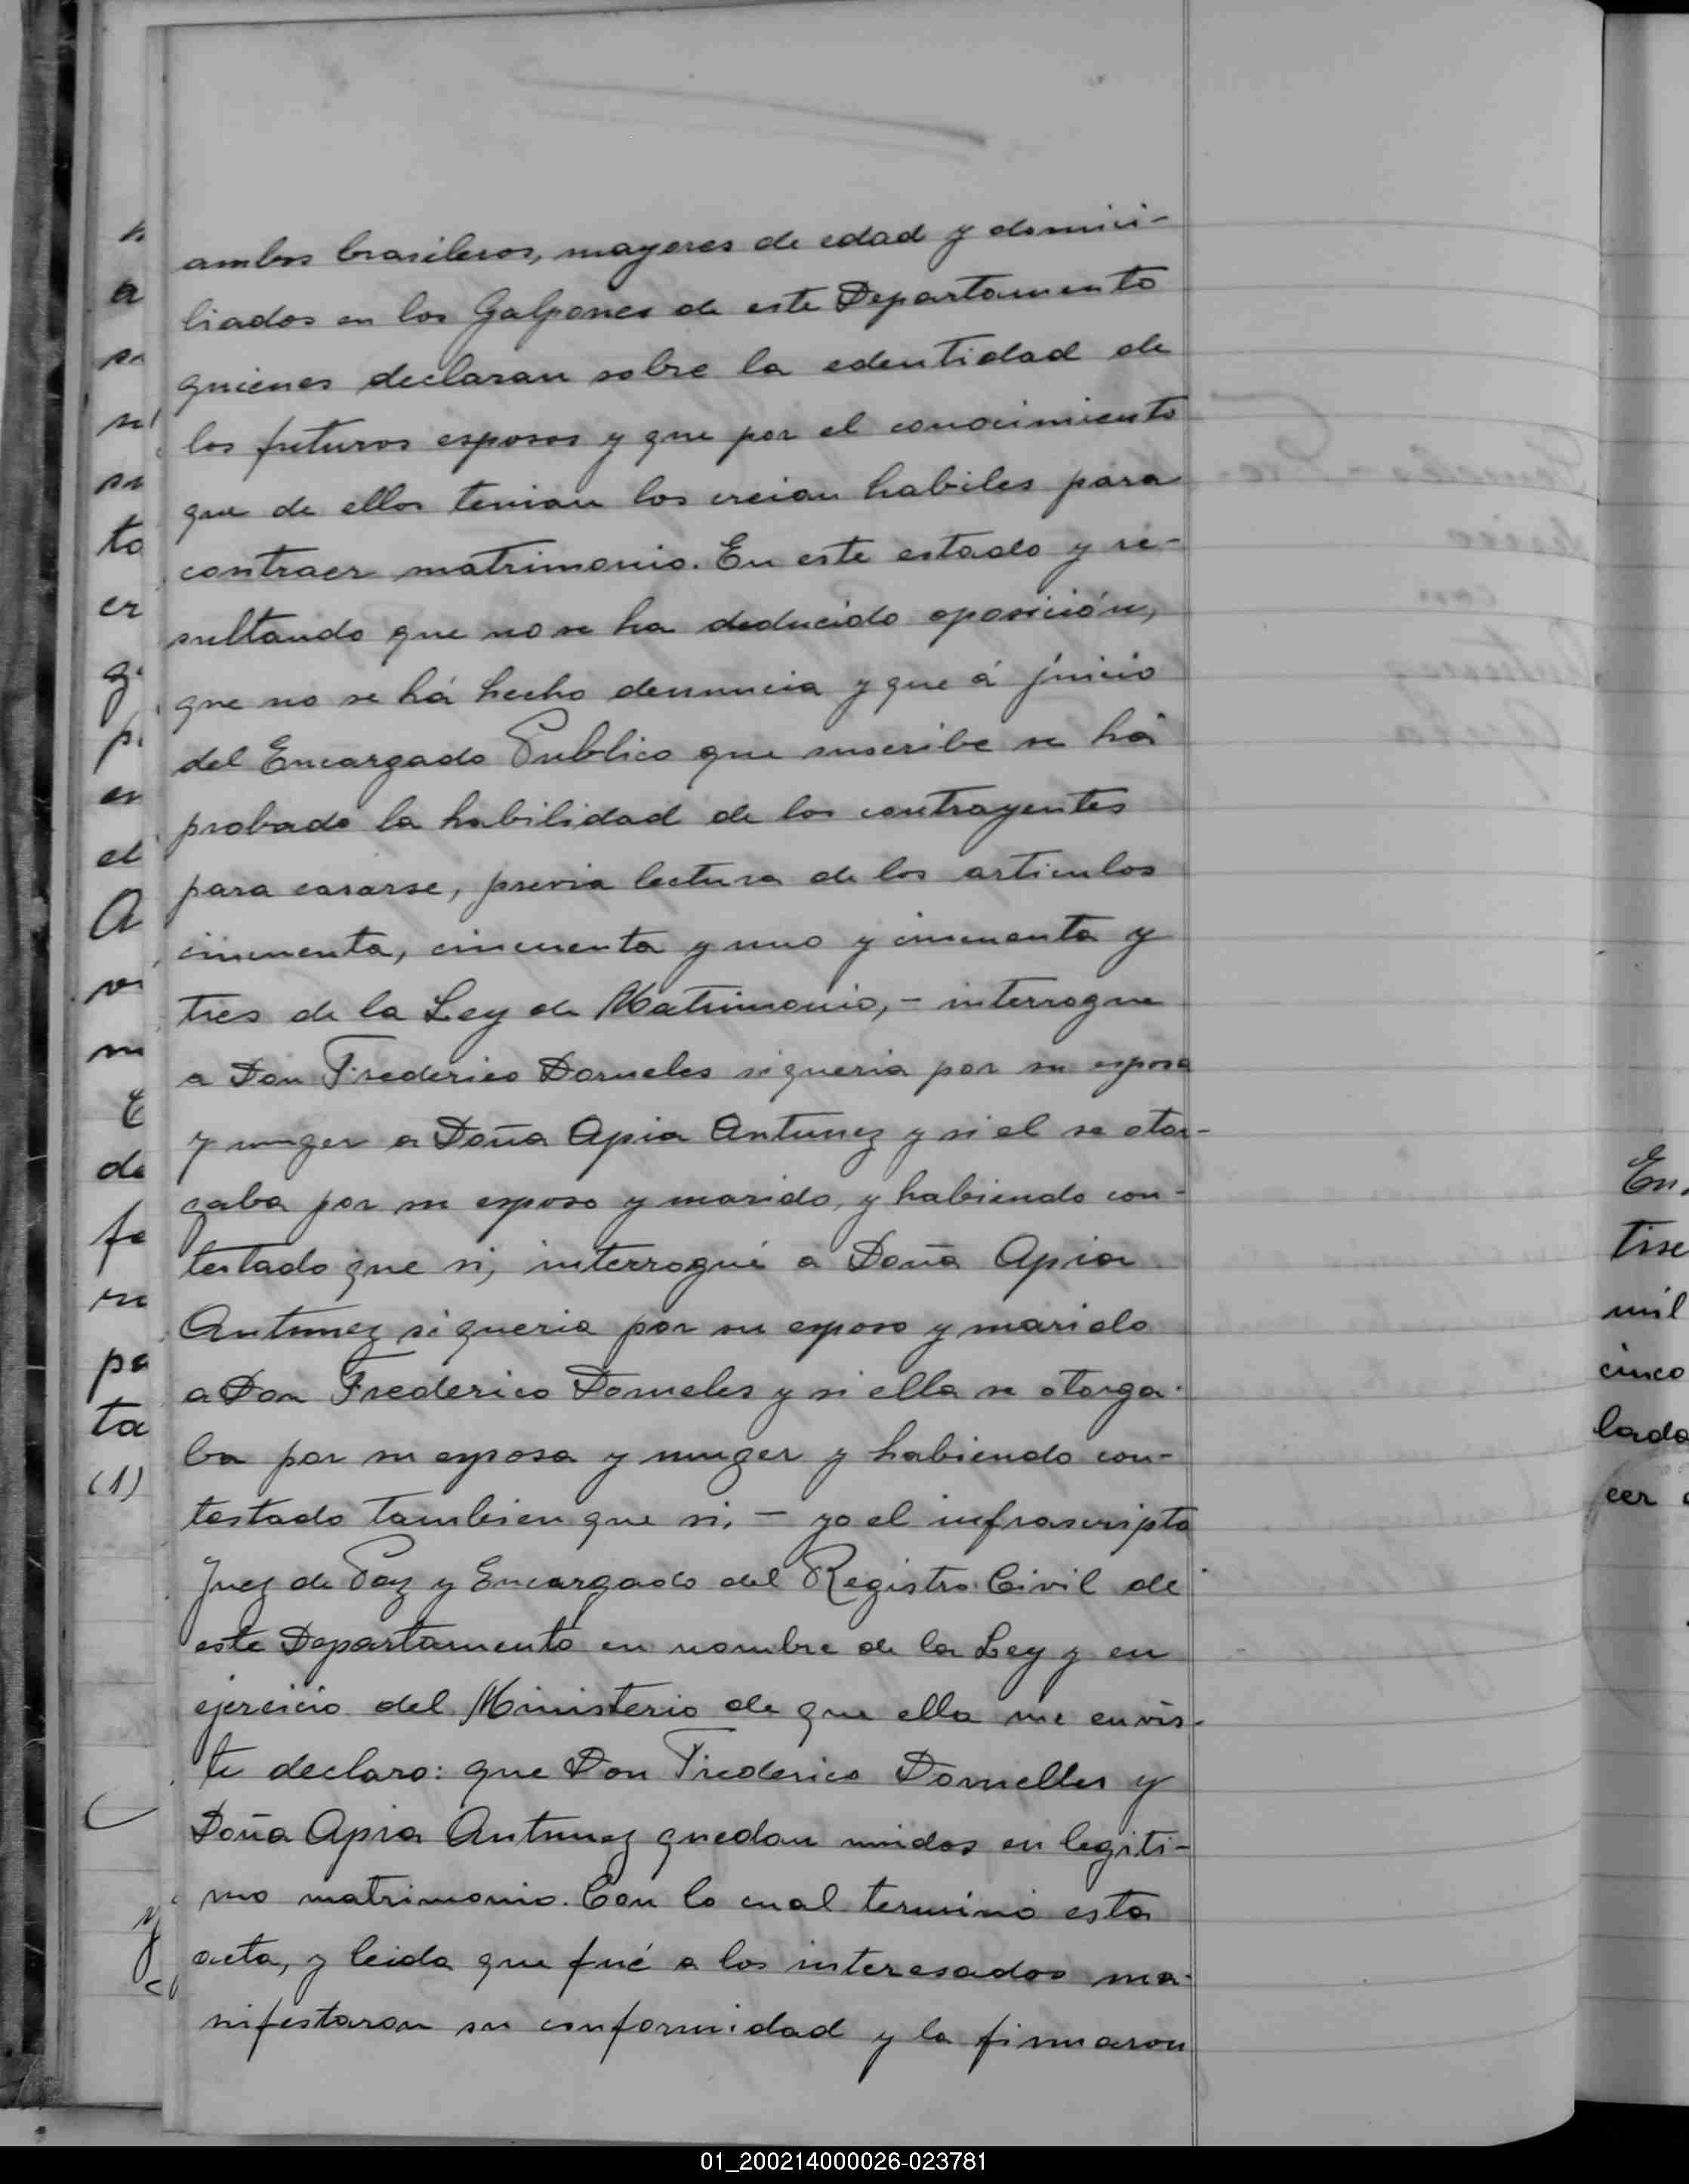 ambos brasileros, mayores de edad y domici-
liados en los Galpones de este Departamento
quienes declaran sobre la edentidad de
los futuros esposos y que por el conocimiento
que de ellos tenian los creian habiles para
contraer matrimonio. En este estado y re-
sultando que no se ha deducido oposición,
que no se há hecho denuncia y que á juicio
del Encargado Publico que suscribe se há
probado la habilidad de los contrayentes
para casarse, previa lectura de los articulos
cincuenta, cincuenta y uno y cincuenta y
tres de la Ley de Matrimonio, - interrogue
a Don Frederico Dorneles si queria por su esposa
y muger a Doña Apia Antunez y si el se otor-
gaba por su esposo y marido, y habiendo con-
testado que si, interrogué a Doña Apia
Antunez si queria por su esposo y marido
a Don Frederico Dorneles y si ella se otorga-
ba por su esposa y muger y habiendo con-
testado tambien que si, - yo el infrascripto
Juez de Paz y Encargado del Registro Civil de
este Departamento en nombre de la Ley y en
ejercicio del Ministerio de que ella me envis-
te declaro: que Don Frederico Dornelles y
Doña Apia Antunez quedan unidos en legiti-
mo matrimonio. Con lo cual terminó esta
acta, y leida que fué a los interesados ma-
nifestaron su conformidad y la firmaron
to
er
el
de
pa
ta
(1)
En
mil
cinco
lado
cer
01_200214000026-023781